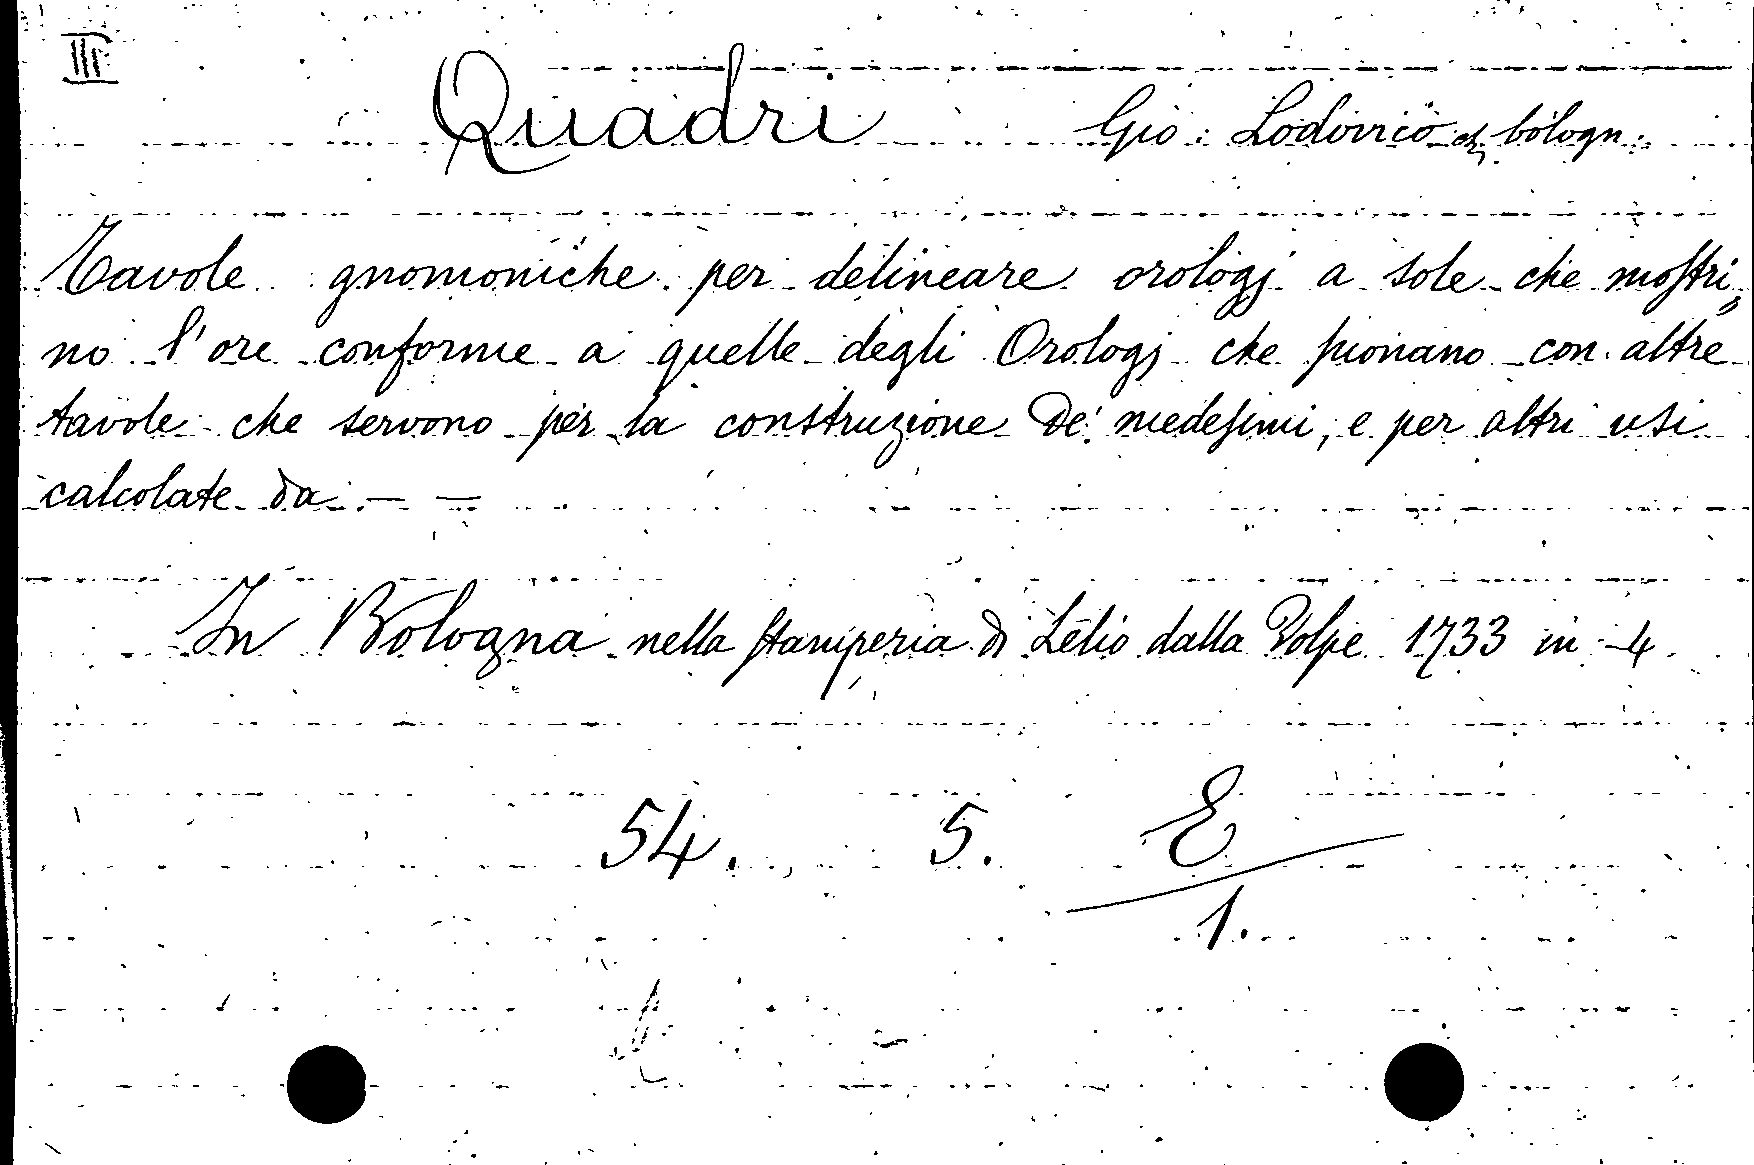 III
Quadri Gio: Lodovico bologn:
Tavole gnomoniche per delineare orologj a sole che mostri,
no l'ore conforme a quelle degli Orologj che suonano con altre
tavole che servono per la construzione de' medesimi, e per altri usi
calcolate da — —
In Bologna nella stamperia di Lelio dalla Volpe 1733 in 4.
54. 5. E
1.